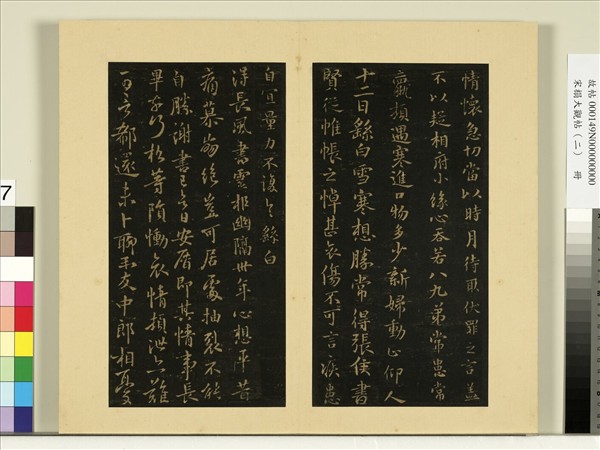 情懷急切當以時月待取伏罪之言蓋
不以疑相府小緣心吞若八九弟常患常
羸頓遇寒進口物多少新婦動止仰人
十二日繇白雪寒想勝常得張侯書
賢從帷帳之悼甚哀傷不可言疾患
自宜量力不復具繇白
得長風書靈柩幽隔卅年心想平昔
痛慕崩絕豈可居處抽裂不能
自勝謝書已具安厝即其情事長
畢存亡松等隕慟哀情頓泄亦難
可言鄰還未卜聊示友中郎相憂
故帖 000149N000000000
宋榻大觀帖(二) 冊
7